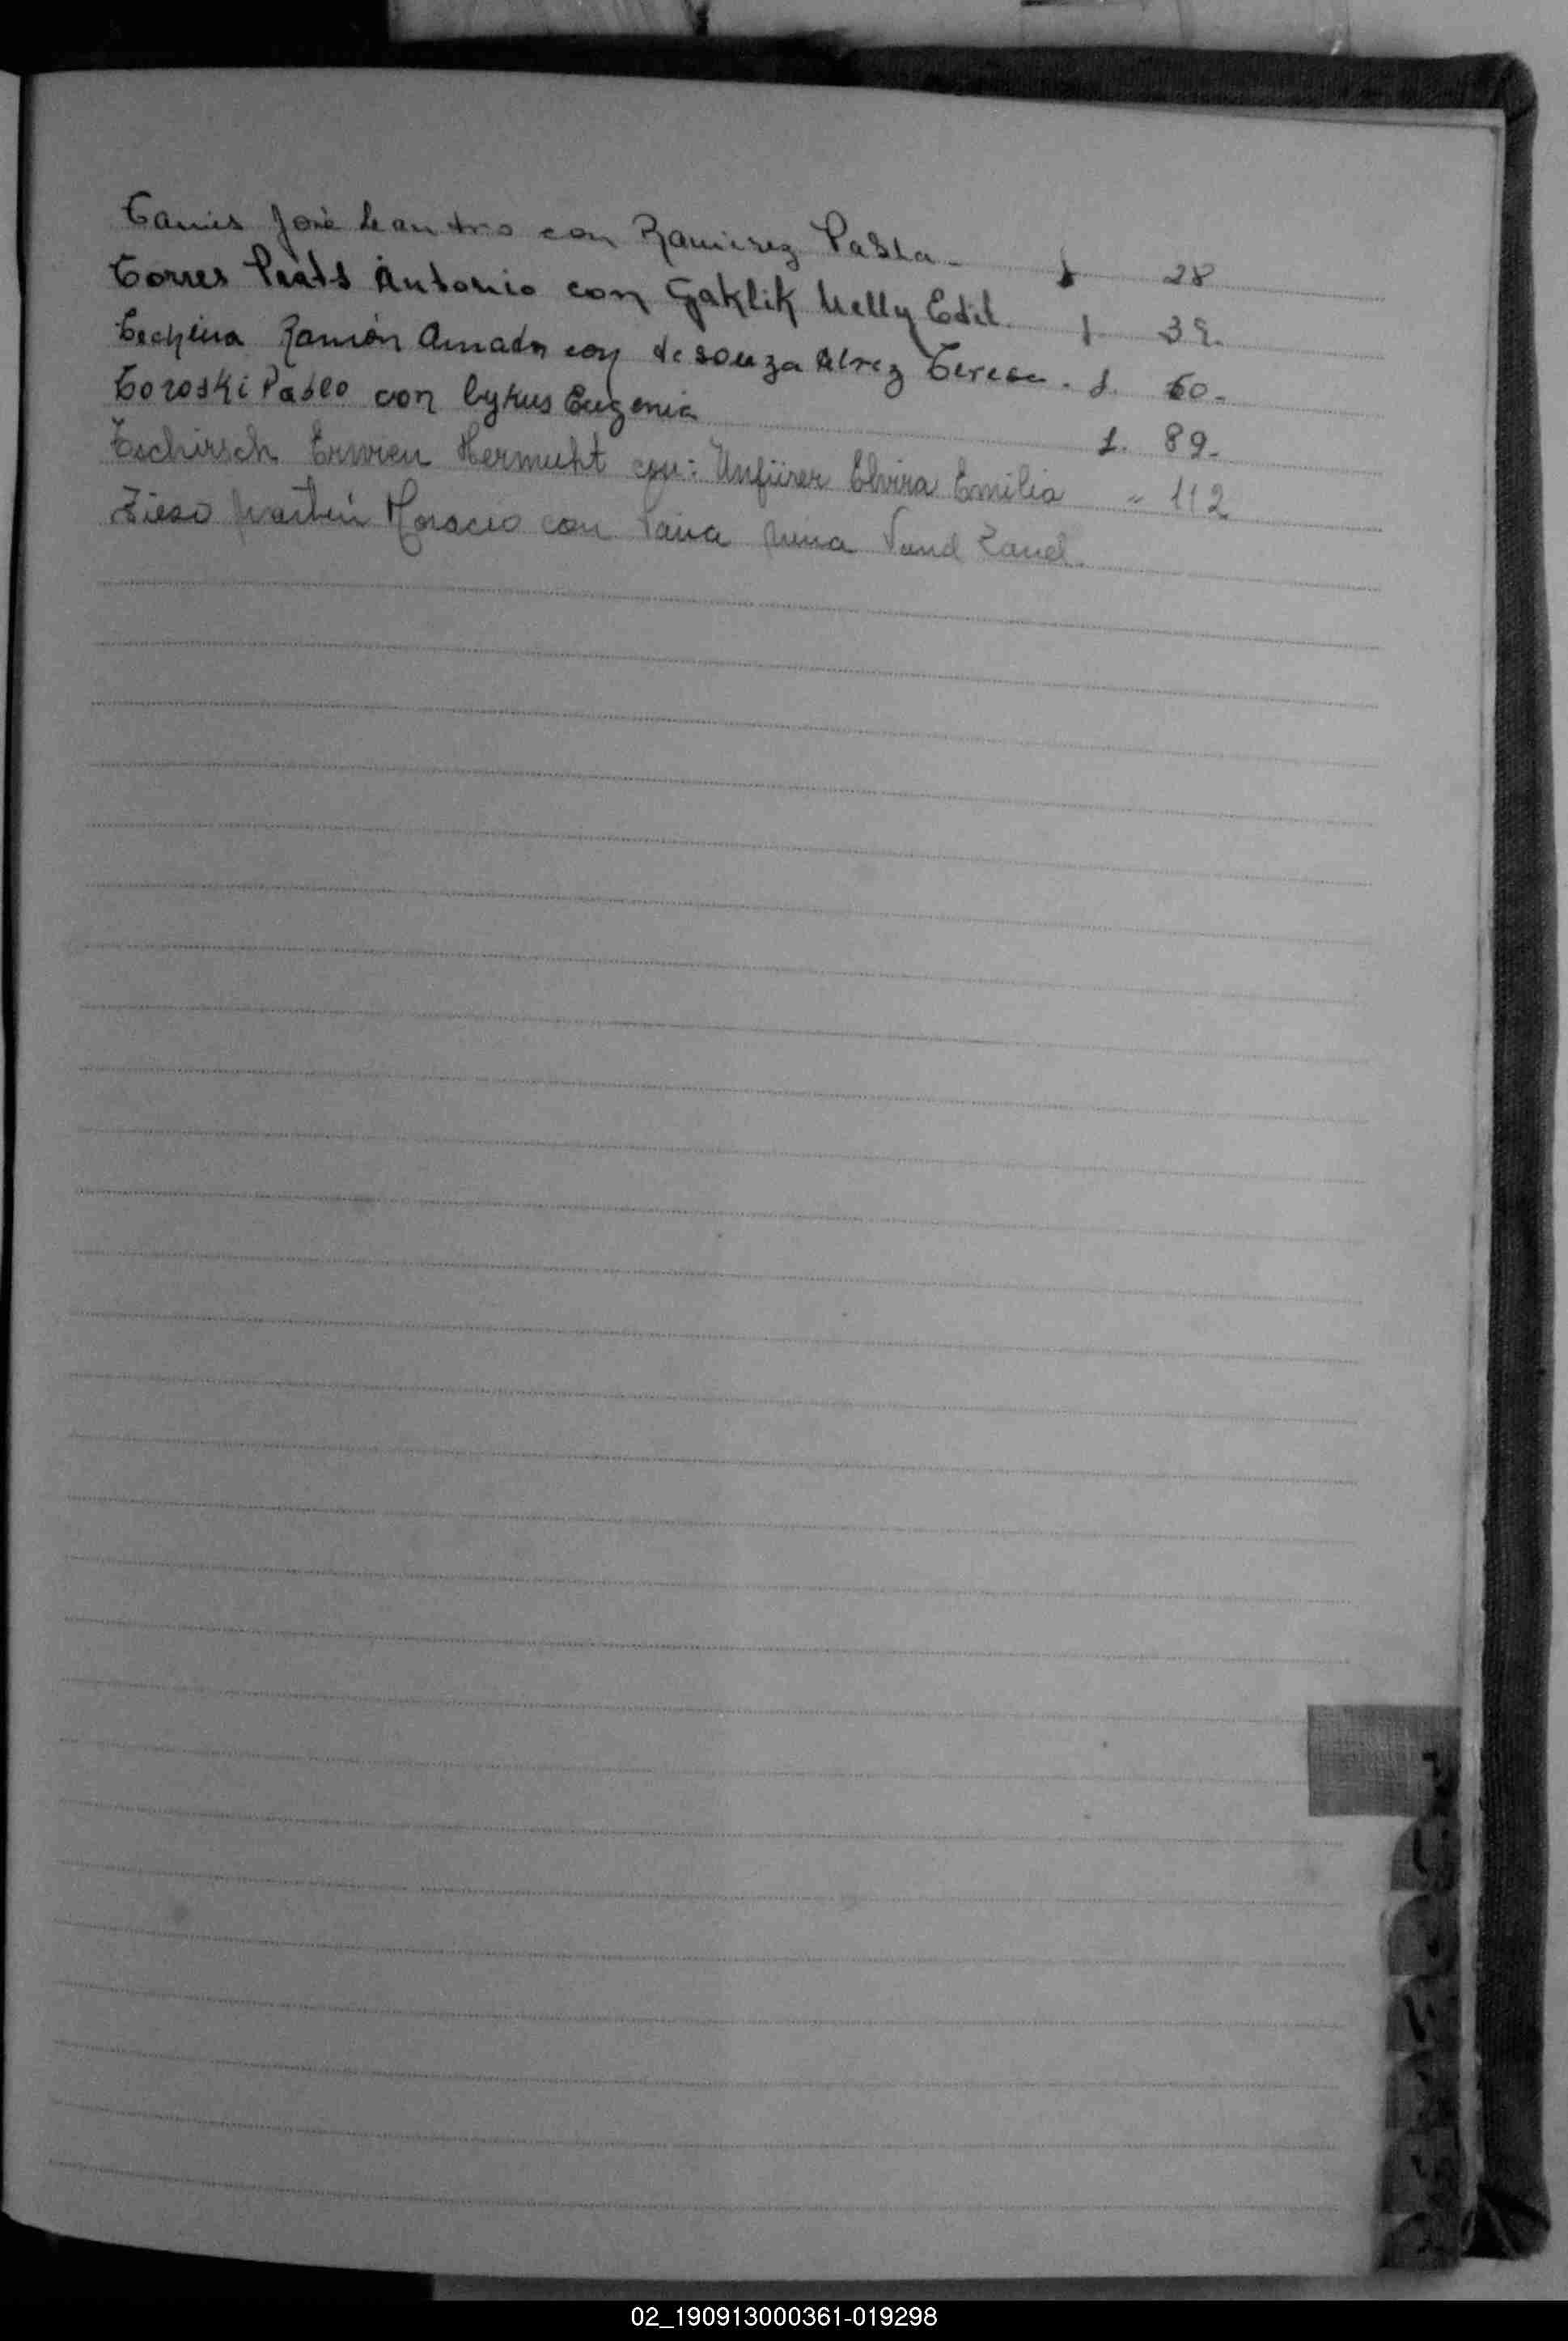 Tanis José Leandro con Ramirez Pabla - f 28
Torres Prats Antonio con Gaklik Nelly Edit f. 39.
Techeira Ramón Amado con de souza Alvez Teresa. f. 60-
Toroski Pablo con Cykus Eugenia f. 89-
Tschirsch Erwien Hermuht con: Unfürer Elvira Emilia " 112
Martin Horacio con Paiva
T
02_190913000361-019298